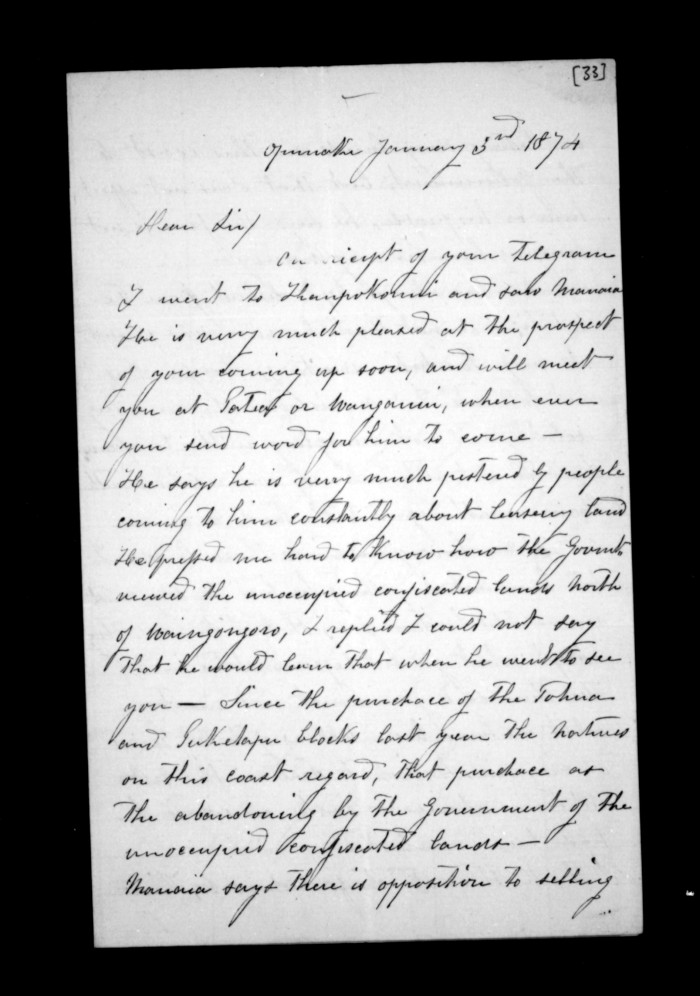 [33]
Opunake January 3rd 1874
Dear Sir/
On receipt of your Telegram
I went to and saw Manaia
He is very much pleased at the prospect
of your coming up soon, and will meet
you at Patea or Wanganui, when ever
you send word for him to come —
He says he is very much pestered by people
coming to him constantly about leasing land
He pressed me hard to know how the Govmt
viewed the unoccupied confiscated lands North
of Waingongoro, I replied I could not say
that he would learn that when he went to see
you — Since the purchace of the
and Puketapu blocks last year the Natives
on this coast regard, that purchace as
the abandoning by the Government of the
unoccupied confiscated lands —
Manaia says there is opposition to selling